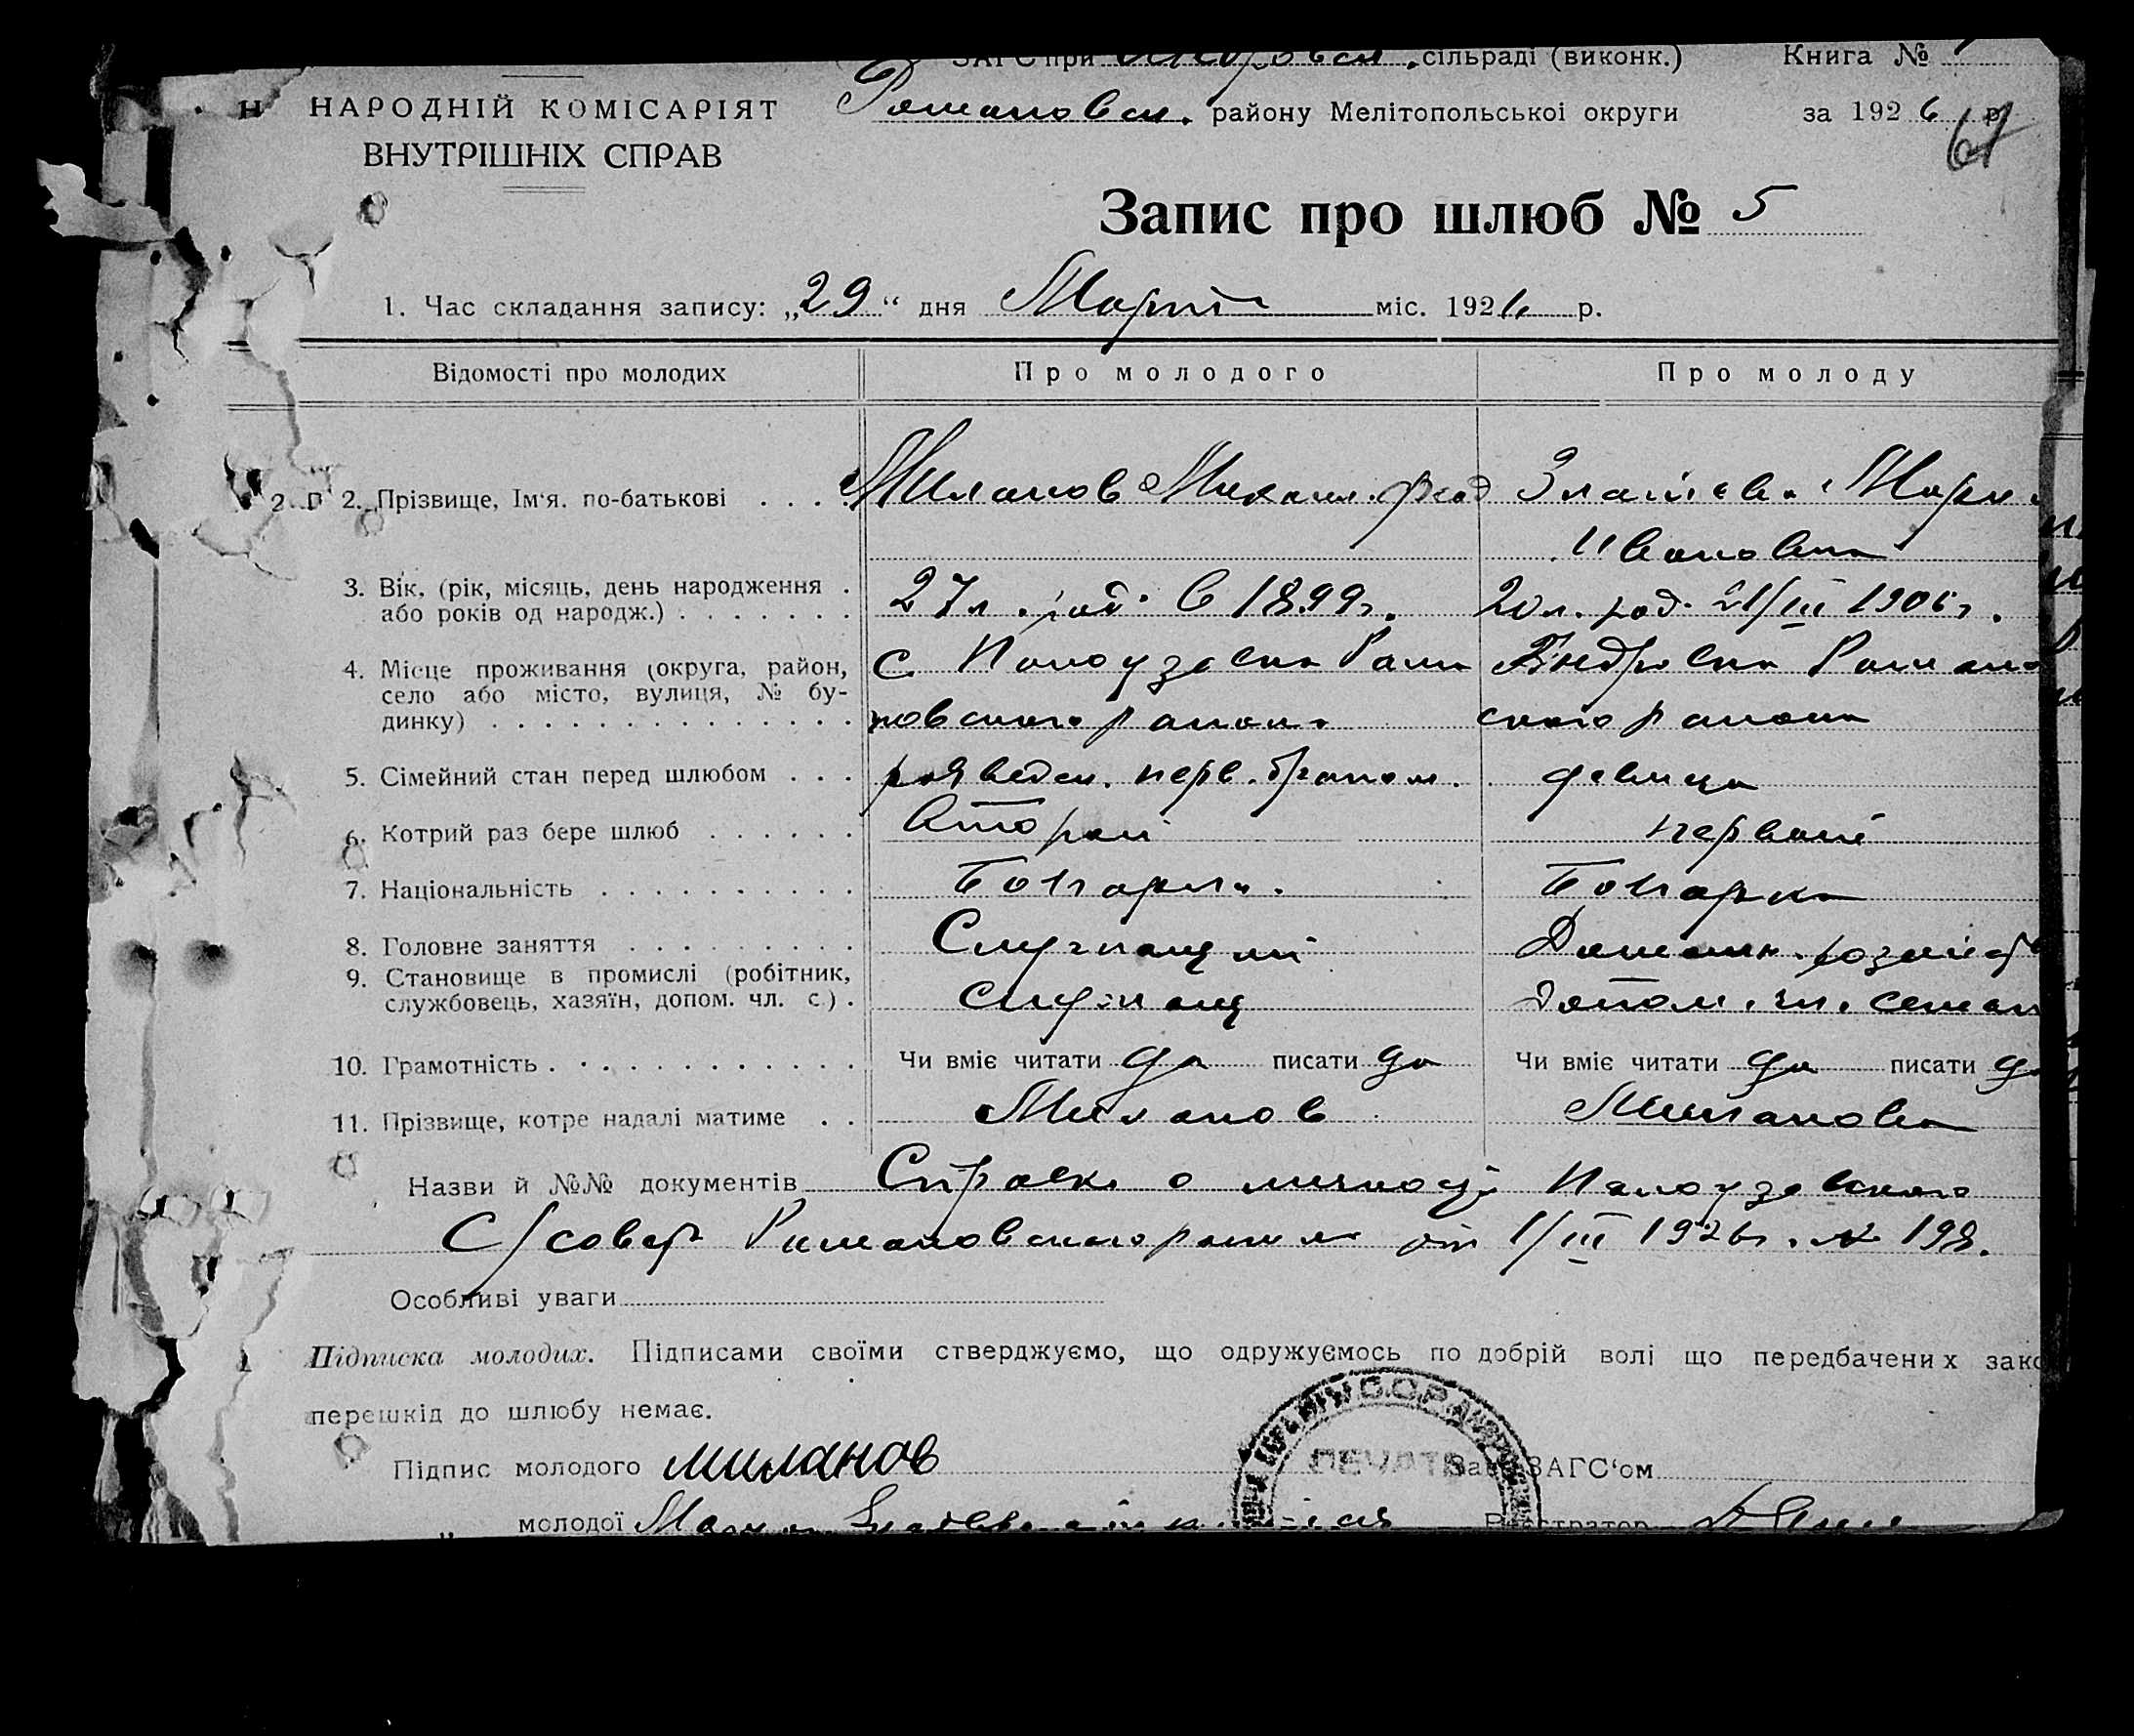 ЗАГС при сільраді (виконк.) Книга №
НАРОДНІЙ КОМІСАРІЯТ
ВНУТРІШНІХ СПРАВ
Романовск. району Мелітопольської округи за 1926 р.
61
Запис про шлюб № 5
1. Час складання запису: „29“ дня Март міс. 1926 р.
Відомості про молодих Про молодого Про молоду
2. Прізвище, Ім‘я. по-батькові . . . Миланов Михаил Златева Мария
Ивановна
3. Вік, (рік, місяць, день народження . 27 л. род. в 1899 г. 20 л. род. 21/III 1906 г.
або років од народж.) . . . . . . .
4. Місце проживання (округа, район, с Рома Андровка Романо
село або місто, вулиця, № бу-
динку) . . . . . . . . . . . . . . новского района ского района
5. Сімейний стан перед шлюбом . . . разведен. перв. браком. девица
6. Котрий раз бере шлюб . . . . . . второй первый
7. Національність . . . . . . . . . . Болгарин. Болгарка
8. Головне заняття . . . . . . . . . Служащий Домашн.
9. Становище в промислі (робітник,
службовець, хазяїн, допом. чл. с.) . служащ допом. чл. семьи
10. Грамотність . . . . . . . . . . . . Чи вміє читати да писати да Чи вміє читати да писати да
11. Прізвище, котре надалі матиме . . Миланов Миланова
Назви й №№ документів Справка о личности
С/совета Романовского района от 1/III 1926 г. № 198.
Особливі уваги
Підписка молодих. Підписами своїми стверджуємо, що одружуємось по добрій волі що передбачених зако
перешкід до шлюбу немає.
Підпис молодого миланов Зав. ЗАГС‘ом
ПЕЧАТЬ
„ молодої Реєстратор